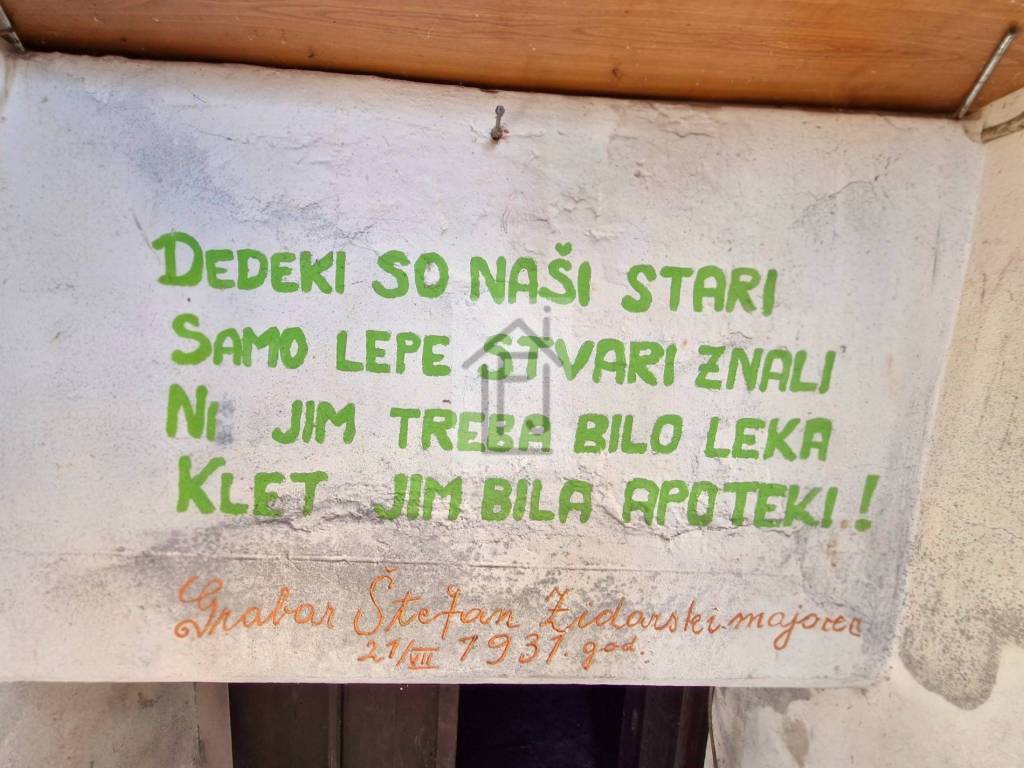 DEDEKI SO NAŠI STARI
SAMO LEPE STVARI ZNALI
NI JIM TREBA BILO LEKA
KLET JIM BILA APOTEKI.!
Grabar Štefan Zidarski majorec
21/VII 1931. god.